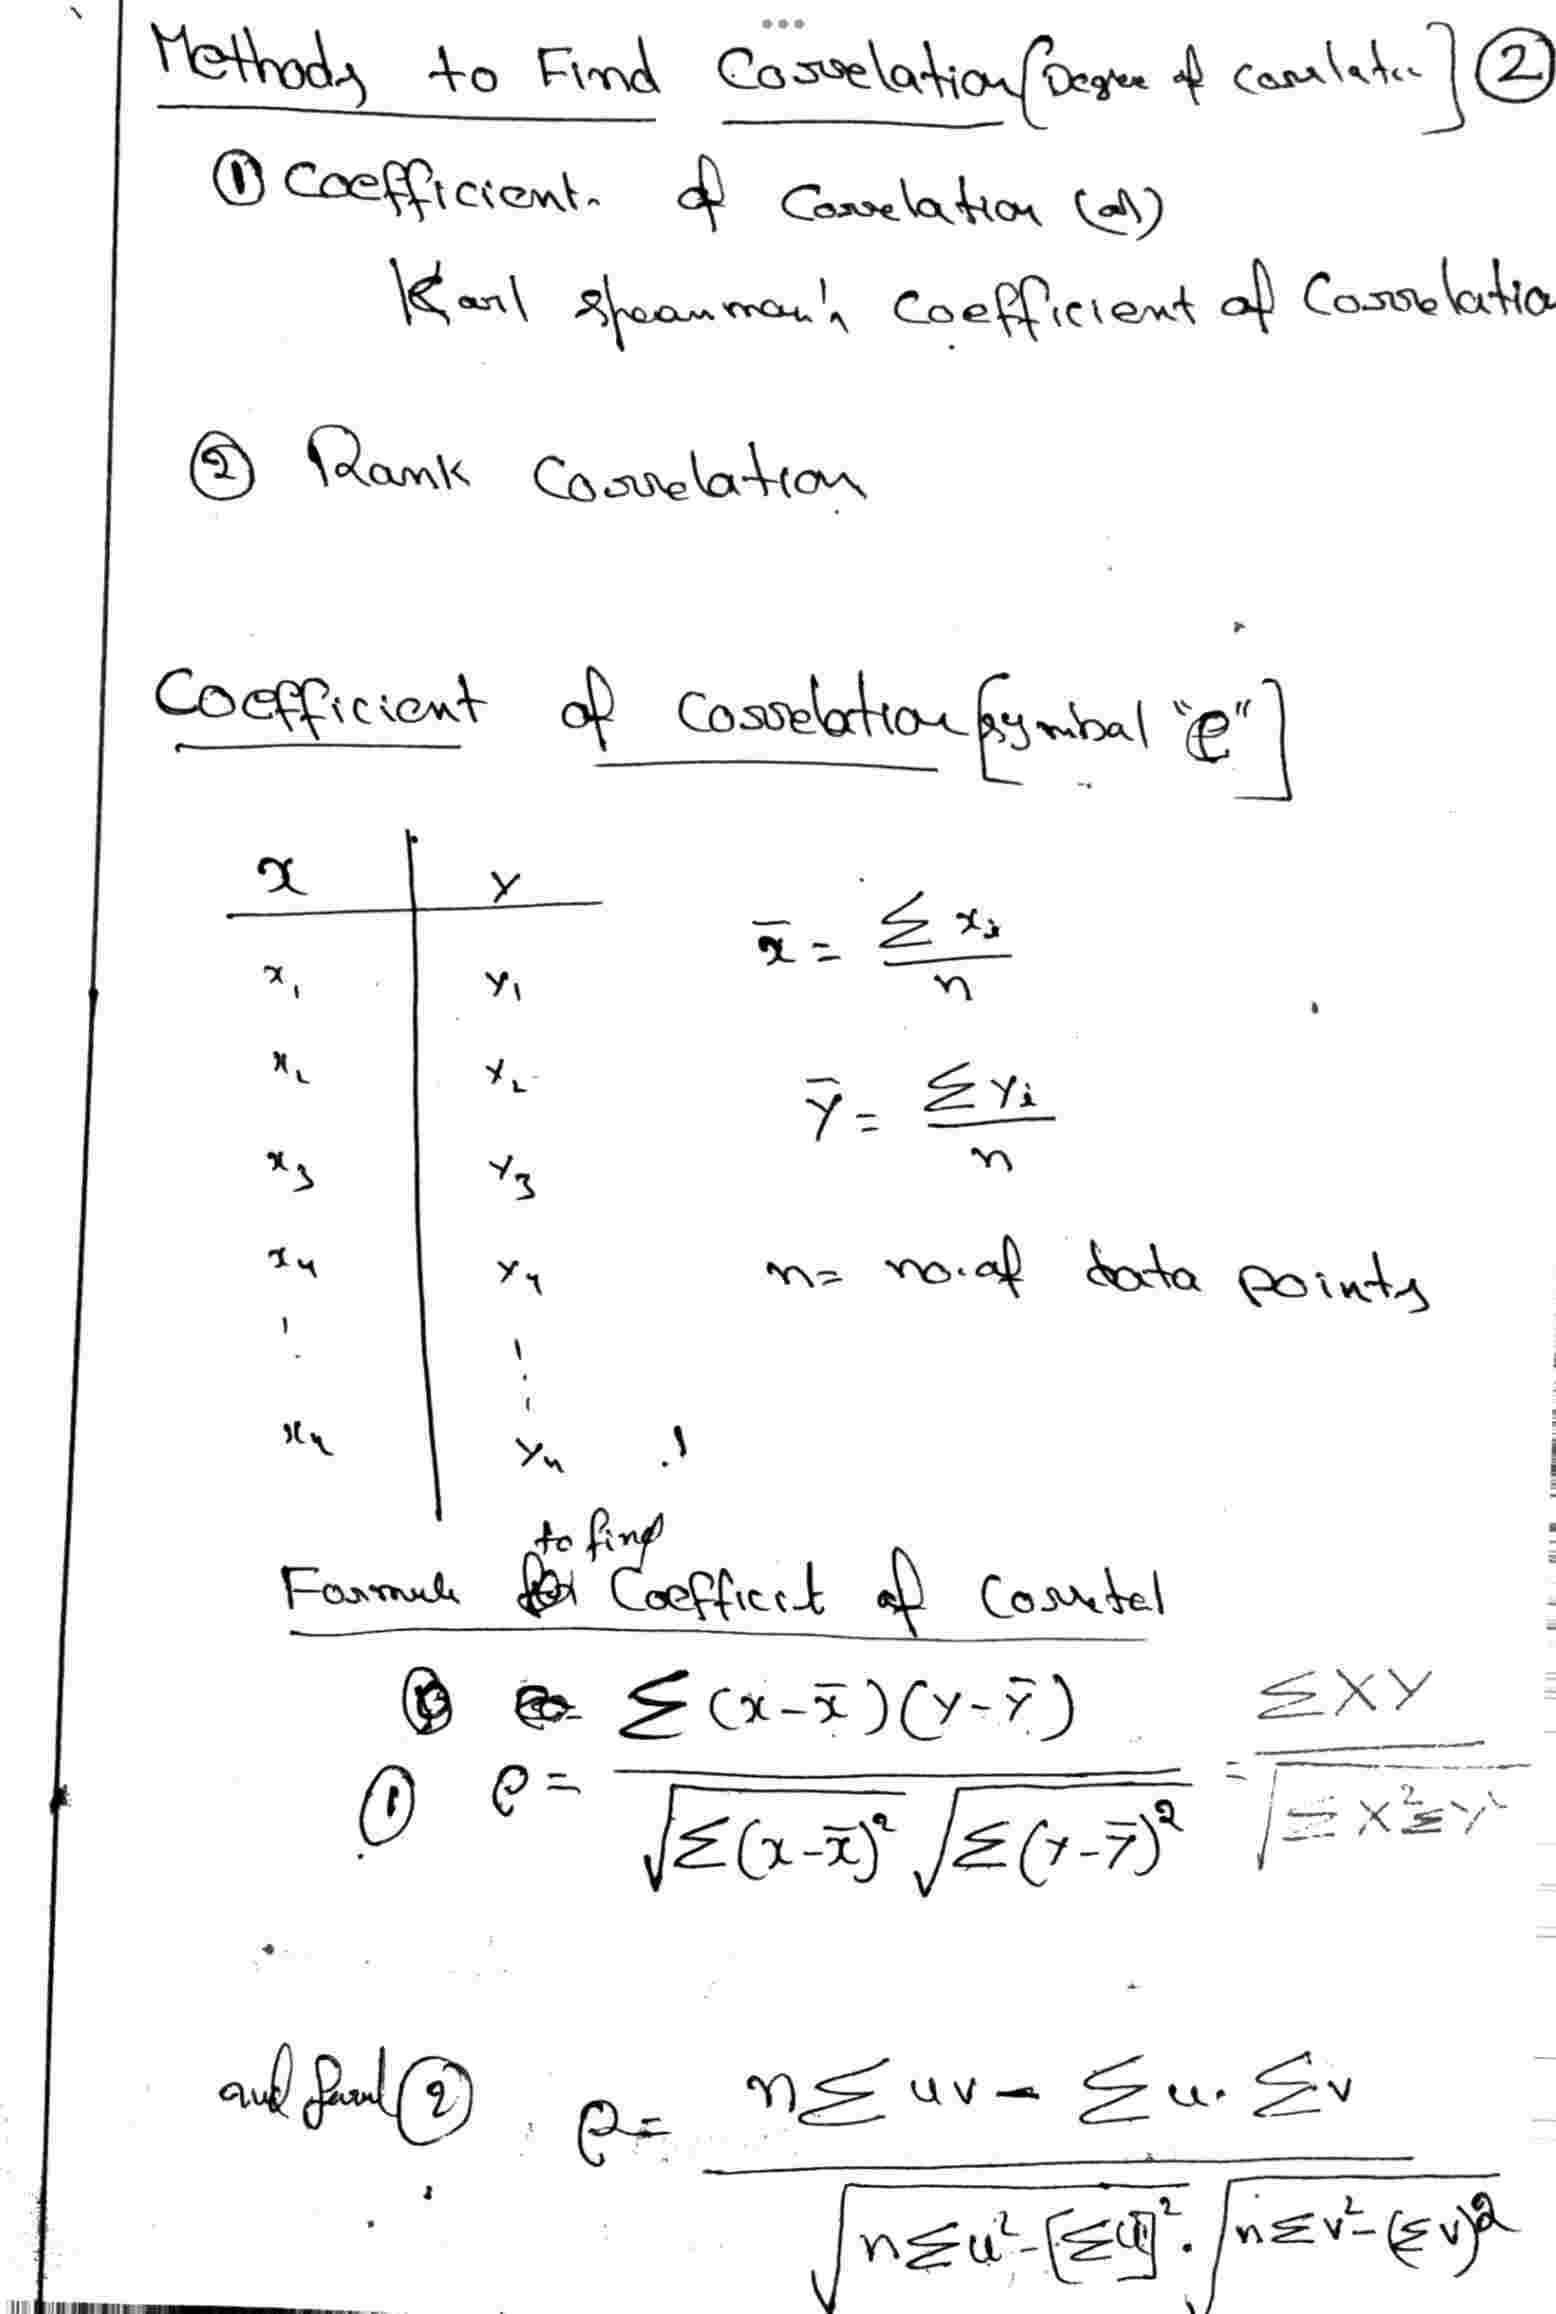 Methods to Find Correlation [Degree of Correlation] ②
① Coefficient of Correlation (or)
Karl Spearman's Coefficient of Correlation
② Rank Correlation
Coefficient of Correlation [Symbol "ρ"]
x | y
x₁ | y₁
x₂ | y₂
x₃ | y₃
x₄ | y₄
xₙ | yₙ
x̄ = Σ xᵢ / n
ȳ = Σ yᵢ / n
n = no. of data points
to find
Formula Coefficient of
① ρ = Σ (x-x̄)(y-ȳ) / √Σ(x-x̄)² √Σ(y-ȳ)² = ΣXY / √ΣX²ΣY²
② ρ = nΣuv - Σu.Σv / √nΣu²-[Σu]² . √nΣv²-(Σv)²